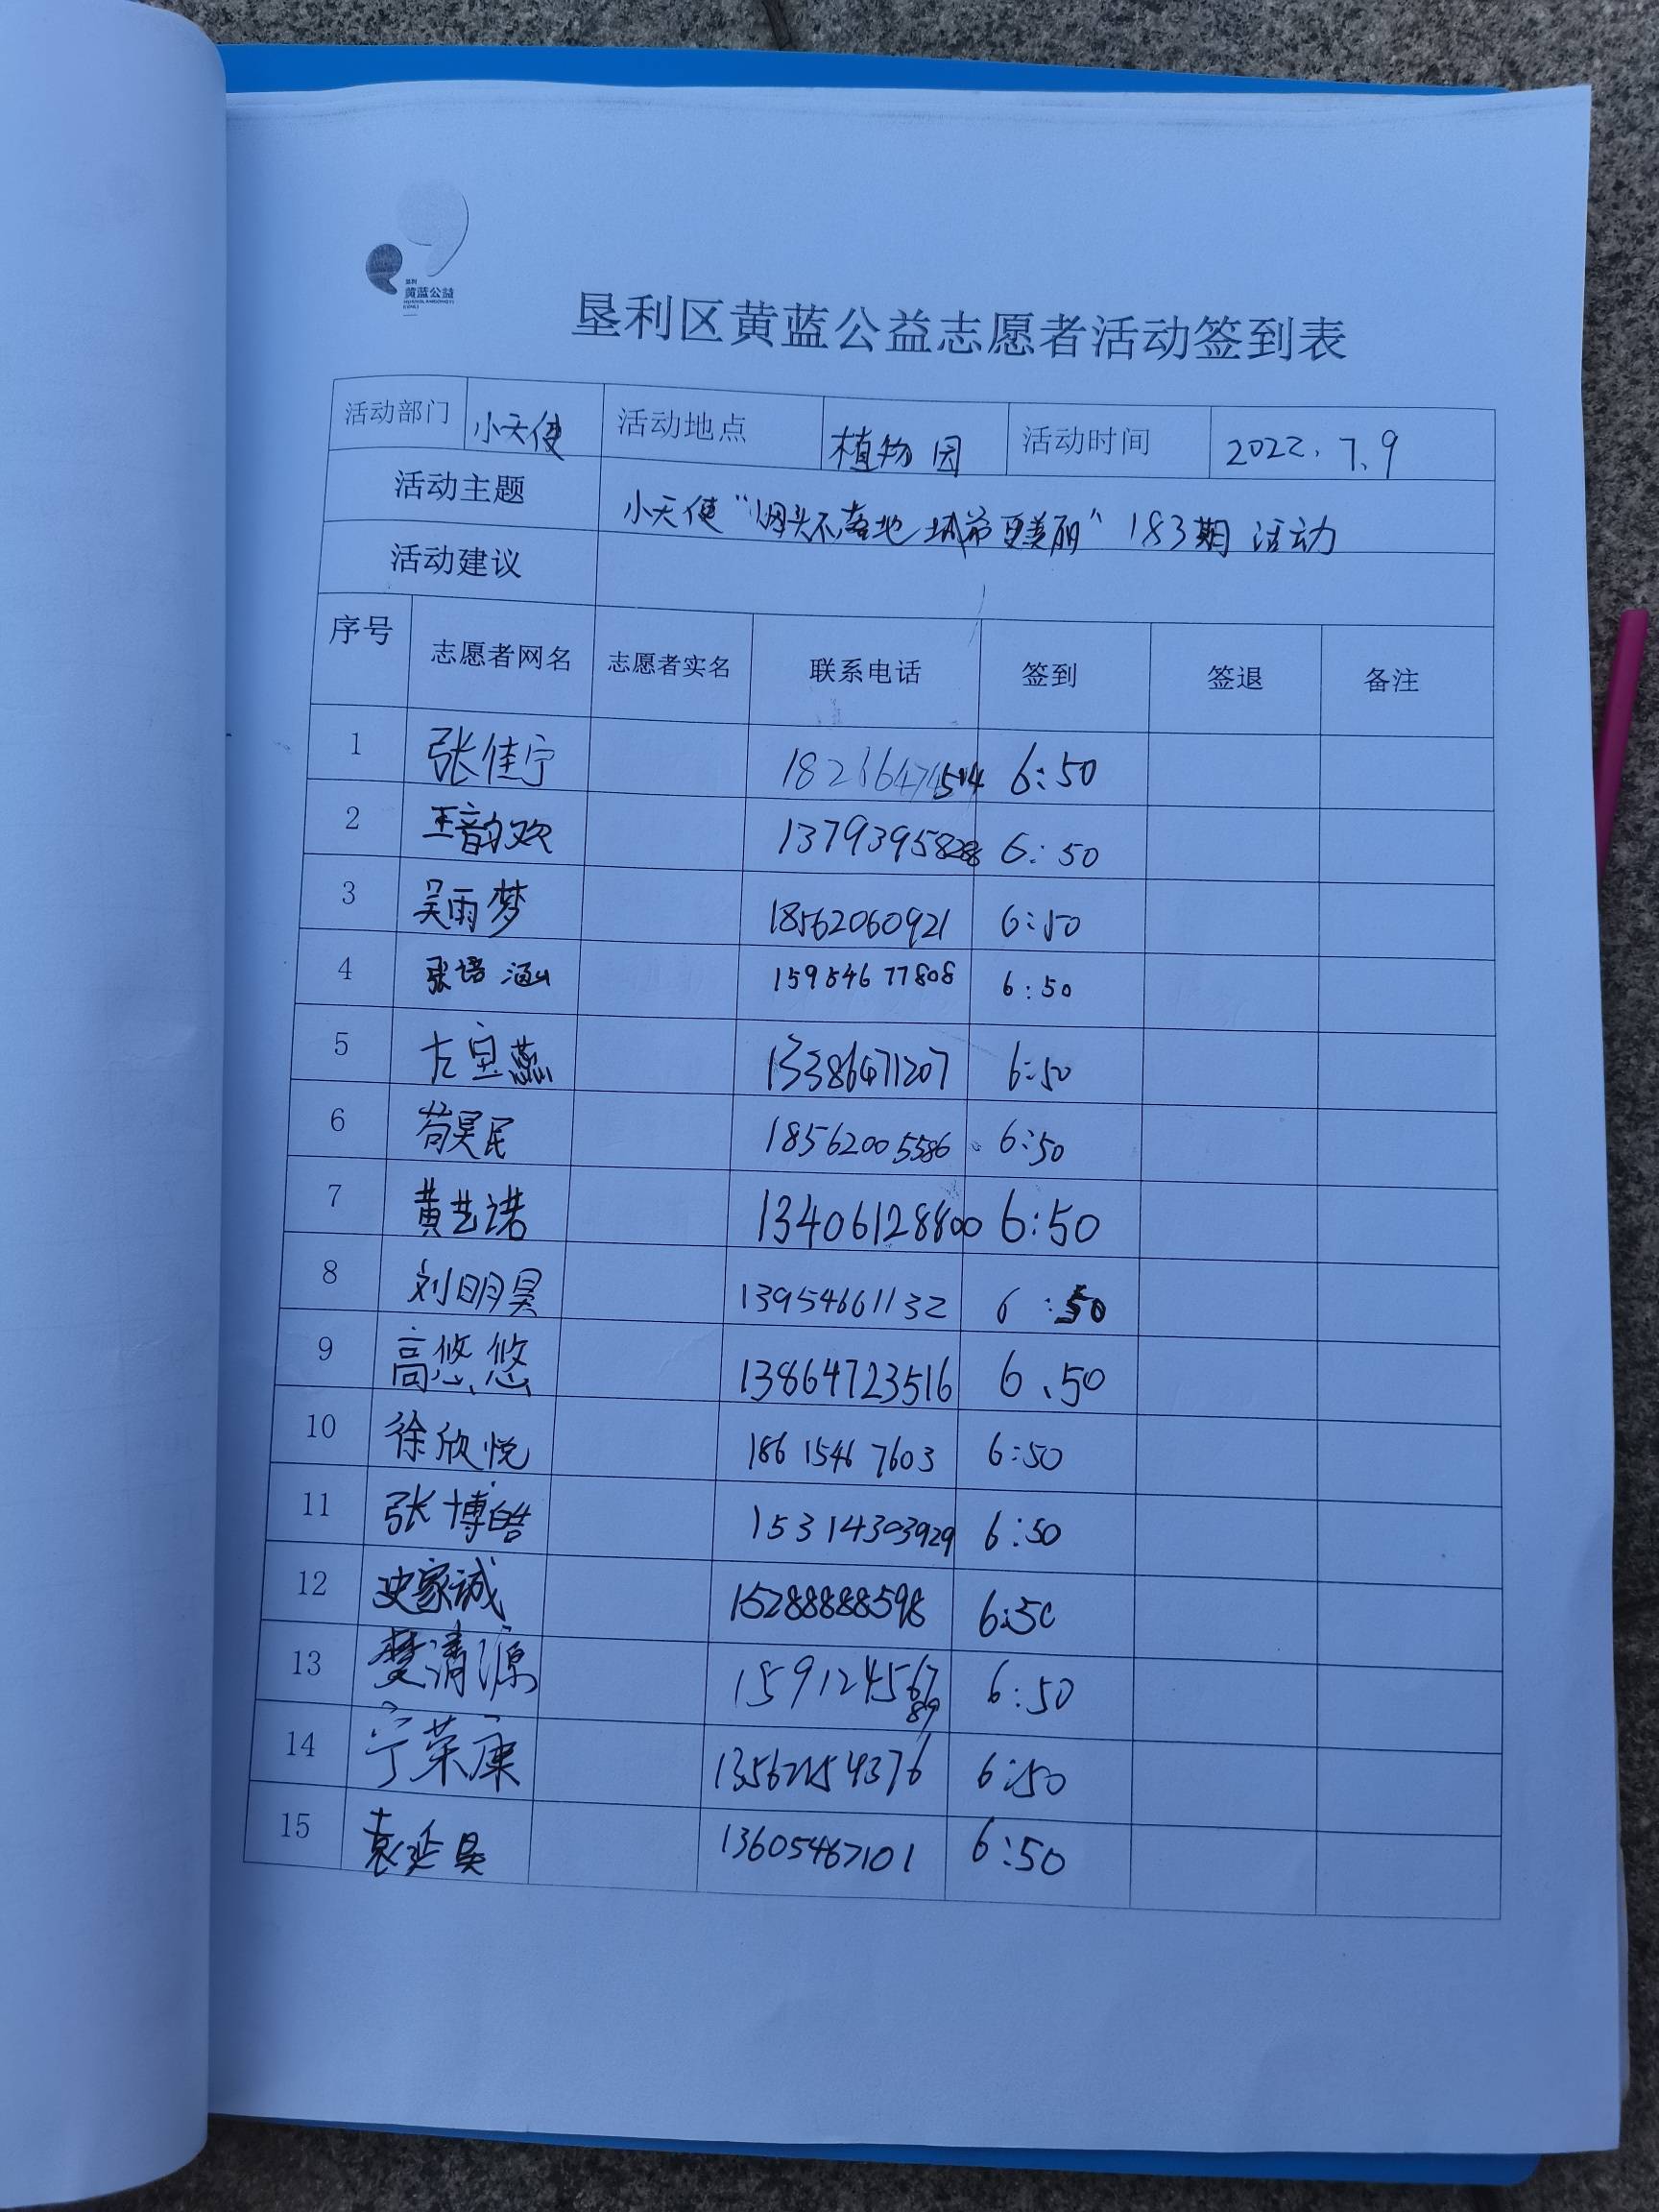 垦利
黄蓝公益
垦利区黄蓝公益志愿者活动签到表
活动部门 小天使 活动地点 植物园 活动时间 2022.7.9
活动主题 小天使“烟头不落地 城市更美丽”183期活动
活动建议
序号 志愿者网名 志愿者实名 联系电话 签到 签退 备注
1 张佳宁 6:50
2 王韵欢 6:50
3 吴雨梦 18562060921 6:50
4 张语涵 15954677808 6:50
5 左宜燕 13386471207 6:50
6 苟昊民 18562005586 6:50
7 黄艺诺 13406128800 6:50
8 刘明昊 13954661132 6:50
9 高悠悠 13864723516 6、50
10 徐欣悦 18615467603 6:50
11 张博皓 15314303929 6:50
12 史家诚 15288888598 6:50
13 樊清源 15912456789 6:50
14 宁荣康 6:50
15 袁延昊 13605467101 6:50